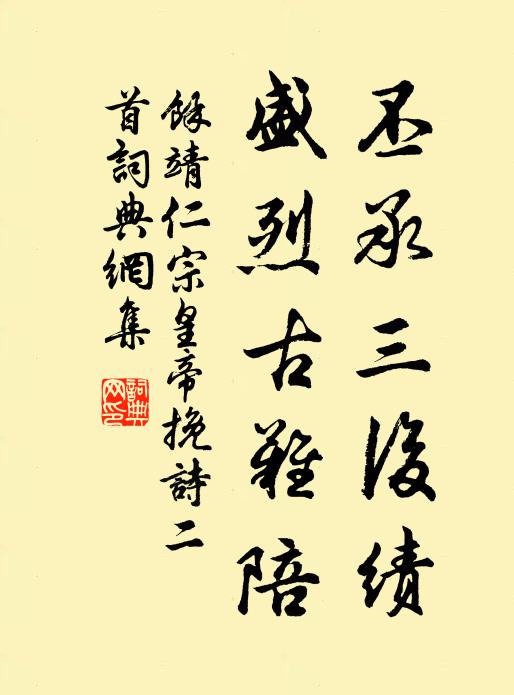 丕承三後績
盛烈古難陪
餘靖仁宗皇帝挽詩二
首詞典網集
詞典网印